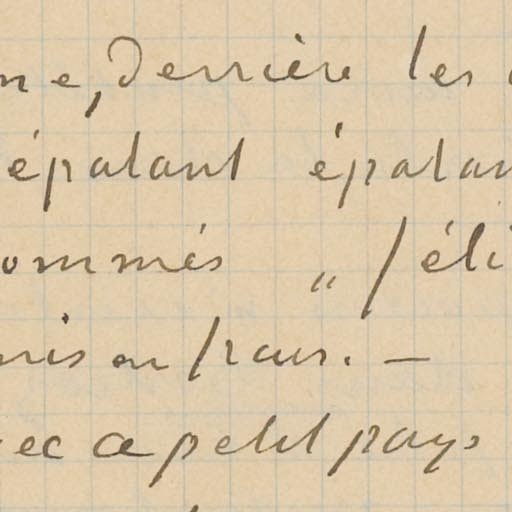 ne, Derrière les
épatant épatan
ommés „ féli
mis en frais. —
ec ce petit pays